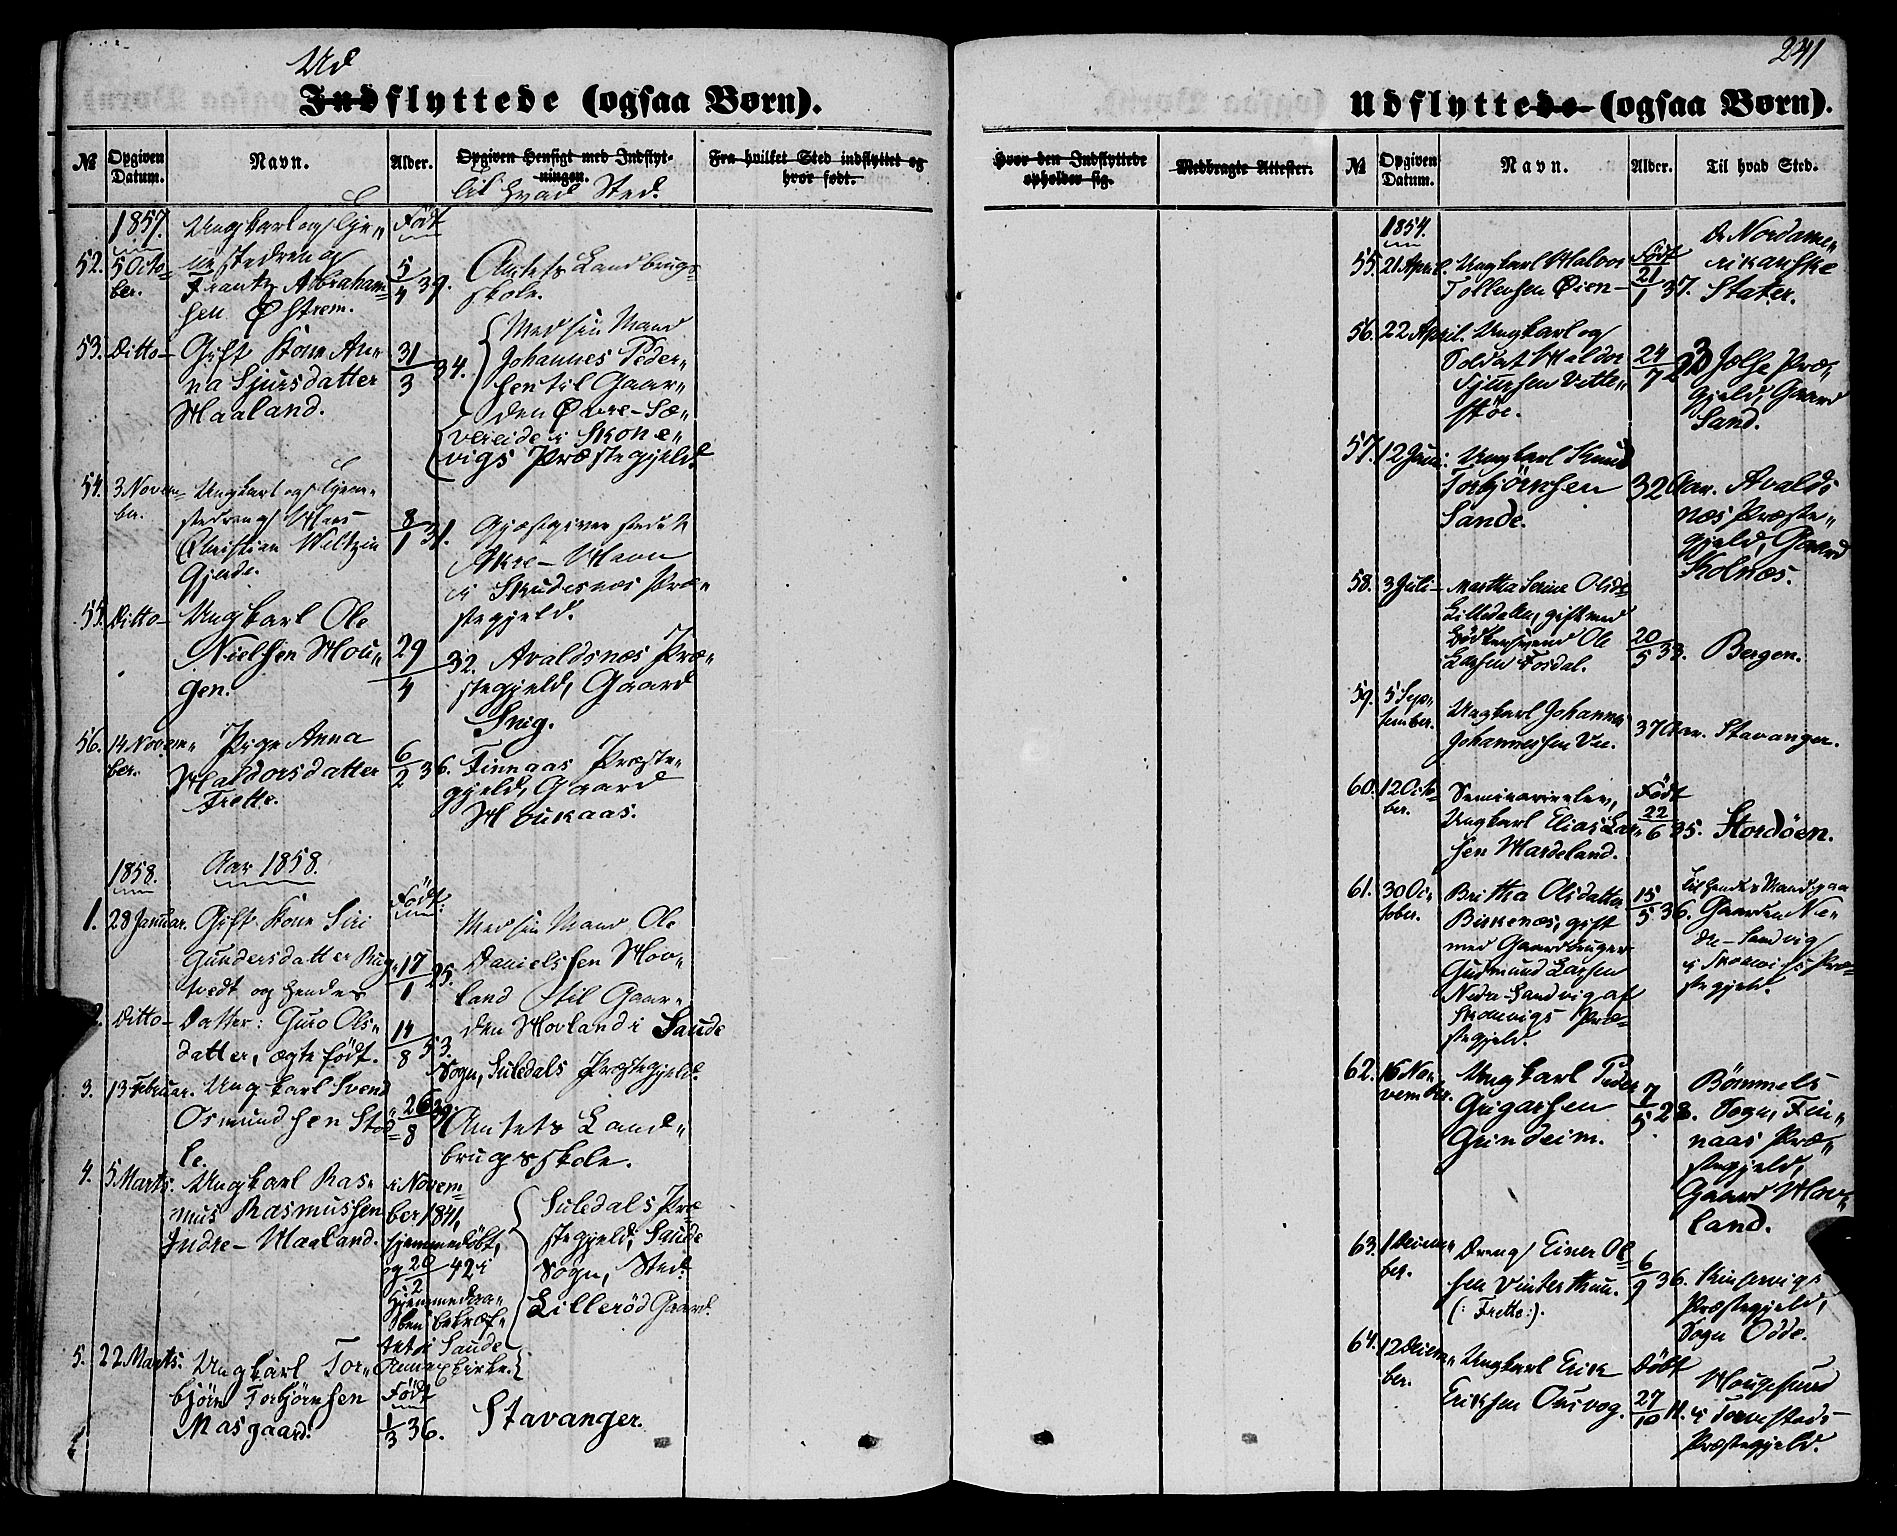 241
Ud
Indflyttede (ogsaa Børn).
№
Opgiven Datum.
Navn.
Alder.
Opgiven Hensigt med Indflyt-
ningen.
Til hvad Sted.
Fra hvilket Sted indflyttet og
hvor født.
1857.
Født
52. 5 Octo-
ber.
Ungkarl og Tje„
nestedreng
Frantz Abraham-
sen Østrem.
5/4 39.
Amtets Landbrugs-
skole.
53. Ditto-
Gift Kone An„
na Sjursdatter
Maaland.
31/3 34.
Med sin Mand
Johannes Peder„
sen til Gaar„
den Øvre-Sæ„
vereide i Skone„
vigs Præstegjeld.
54. 3 Novem-
ber.
Ungkarl og Tjene-
stedreng
Christian Weltzin
Gjerde.
8/1 31.
Gjæstgiverstedet
Akre-Havn
i Skudesnæs Præ„
stegjeld.
55. Ditto-
Ungkarl Ole
Nielsen Hou„
gen.
29/4 32.
Avaldsnæs Præ„
stegjeld, Gaard
56. 14 Novem„
ber.
Pige Anna
Haldorsdatter
Frette.
6/2 36.
Finnaas Præste„
gjeld, Gaard
Houkaas.
1858.
Aar 1858.
Født:
1. 28 Januar.
Gift Kone Siri
Gundersdatter
tvedt og hendes
17/1 25.
Med sin Mand Ole
Danielsen Hov„
land til Gaar„
2. Ditto-
Datter: Guro Ols„
datter, ægte født.
14/8 53.
den Hovland i Saude
Sogn, Suledals Præstegjeld.
3. 13 Februar.
Ungkarl Svend
Osmundsen Stød-
le.
26/8 39.
Amtets Land„
brugsskole.
4. 5 Marts.
Ungkarl Ras„
mus Rasmussen
Indre-Maaland.
i Novem-
ber 1841,
hjemmedøbt,
og 20/2 42 i
Saude
Annexkirke.
Suledals Præ
stegjeld, Saude
Sogn, Sted:
Lillerød Gaard.
5. 22 Marts.
Ungkarl Tor„
bjørn Torbjørnsen
Masgaard.
Født
1/3 36.
Stavanger.
Udflyttede (ogsaa Børn).
Hvor den Indflyttede
opholder sig.
Medbragte Attester.
№
Opgiven Datum.
Navn.
Alder.
Til hvad Sted.
1854.
55. 21 April.
Ungkarl Halvor
Tollevsen Øien
Født
21/1 37.
De Nordame„
rikanske
Stater.
56. 22 April.
Ungkarl og
Soldat Haldor
Sjursen Vatte„
støe.
24/7
Jelse Præ„
gjeld, Gaard
Sand.
57. 12 Juni.
Ungkarl Knud
Torbjørnsen
Sande.
32 Aar.
Avalds
næs Præste„
gjeld, Gaard
Kolnæs.
58. 3 Juli-
Martha Serine Olsd.
Lilledalen, gift med
Ole
Larsen Fosdal.
20/5 33.
Bergen.
59. 5 Sep-
tember.
Ungkarl Johannes
Johannessen
37 Aar.
Stavanger.
60. 12 Octo-
ber.
Seminarieelev,
Ungkarl Elias Lar„
sen Mardeland.
Født
22/6 35.
Stordøen.
61. 30 Oc-
tober.
Britha Olsdatter
Birkenæs, gift
med Gaardbruger
Gudmund Larsen
Nedre-Sandvig af
Skonevigs Præ-
stegjeld.
15/5 36.
til hendes Mand paa
Gaarden Ne„
dre-Sandvig
i Skonevigs Præ-
stegjeld.
62. 16 No-
vember.
Ungkarl Peder
Grindeim.
7/5 28.
Bømmels
Sogn, Fin„
naas Præ„
stegjeld,
Gaard Hov„
land.
63. 1 Decem„
ber.
Dreng Einer Ol„
sen Vinterthun.
(: Frette :).
6/9 36.
Kinservigs
Præstegjeld,
Sogn Odde.
64. 12 Decem„
ber.
Ungkarl Erik
Eriksen
Døbt
27/10 11.
Hougesund
i Torvestads-
Præstegjeld.